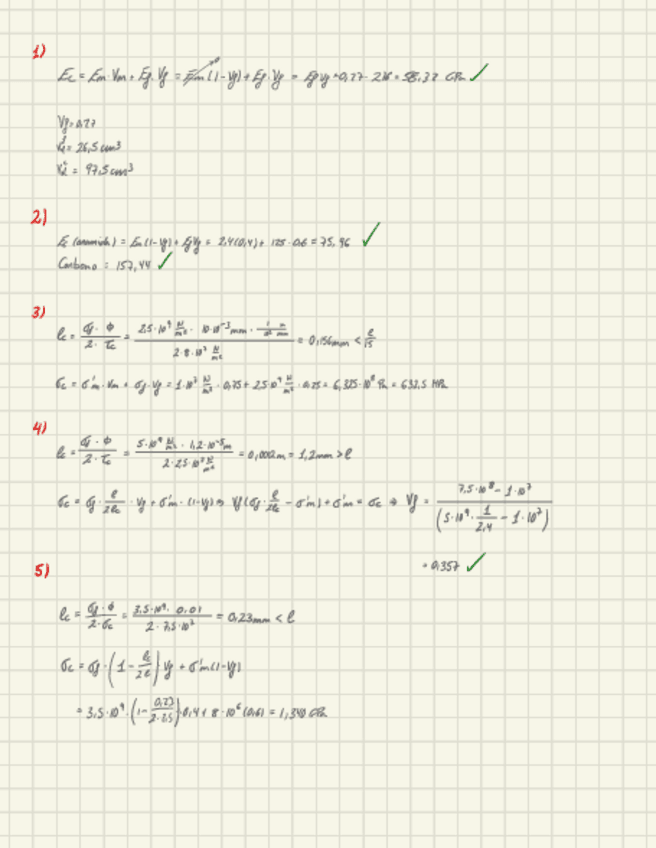 1)
Ec = Em·Vm + Ef·Vf = Em(1-Vf) + Ef·Vf = Ef·Vf = 0,27· 216 = 58,32 GPa ✓
Vf = 0,27
= 26,5 cm³
= 97,5 cm³
2)
Ec (aramida) = Em(1-Vf) + EfVf = 2,4(0,4) + 125·0.6 = 75,96 ✓
Carbono = 157,44 ✓
3)
lc = σf·ϕ / 2·τc = 2,5·10⁹ N/m² · 10·10⁻³mm · / 2·8·10⁷ N/m² = 0,156mm < l/15
σc = σ'm·Vm + σf·Vf = 1·10⁷ N/m² · 0,75 + 2,5·10⁹ N/m² · 0,25 = 6,325·10⁸ Pa = 632,5 MPa
4)
lc = σf·ϕ / 2·τc = 5·10⁹ N/m² · 1,2·10⁻⁵m / 2·2,5·10⁷ N/m² = 0,0012m = 1,2mm > l
σc = σf · l/2lc · Vf + σ'm·(1-Vf) ⇒ Vf(σf · l/2lc - σ'm) + σ'm = σc ⇒ Vf = 7,5·10⁸ - 1·10⁷ / (5·10⁹ · 1/2,4 - 1·10⁷)
= 0,357 ✓
5)
lc = σf·ϕ / 2·σc = 3,5·10⁹ · 0,01 / 2·7,5·10⁷ = 0,23mm < l
σc = σf·(1 - lc/2l) Vf + σ'm(1-Vf)
= 3,5·10⁹·(1 - 0,23/2·2.5)·0,4 + 8·10⁶(0,6) = 1,340 GPa